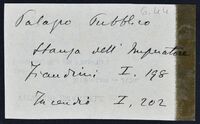 G.44
Palazzo Pubblico
Stanza dell' Imperatore
Fiandrini I, 198
Incendio I, 202